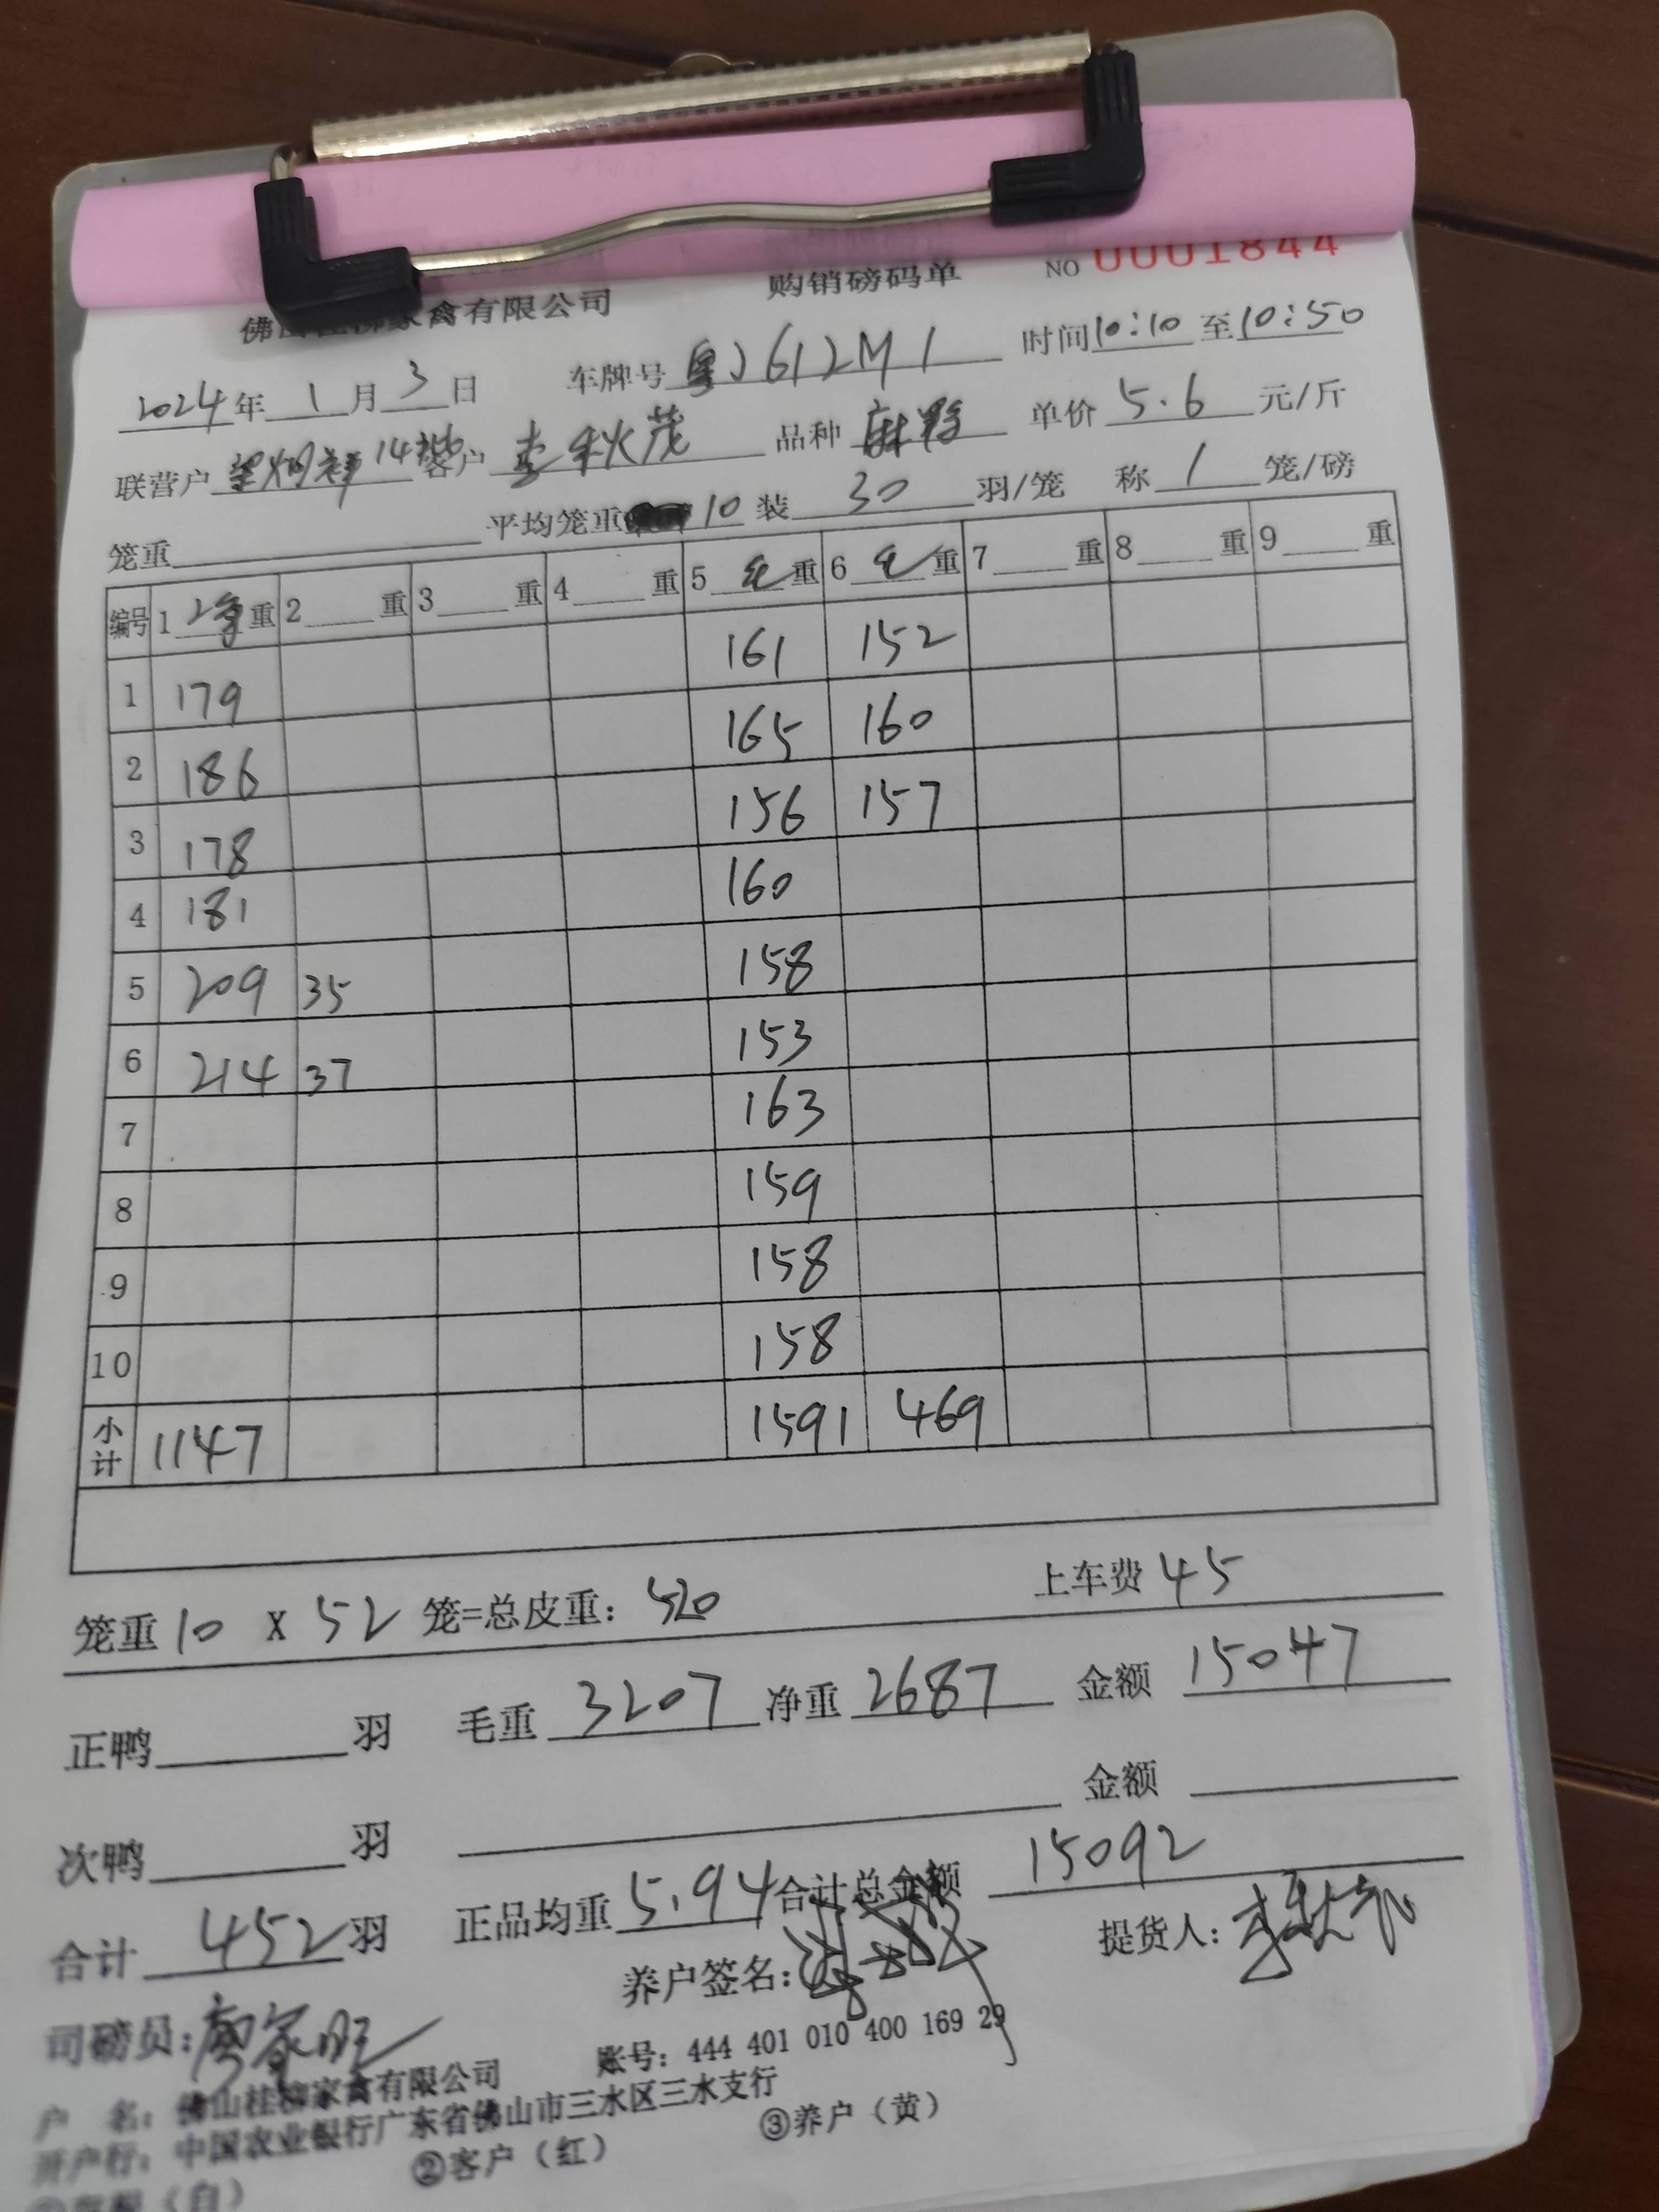 购销磅码单 NO 0001844
佛山桂柳家禽有限公司
2024年 1 月 3 日 车牌号 粤J612M1 时间 10:10 至 10:50
联营户 14 客户 李秋茂 品种 单价 5.6 元/斤
笼重 平均笼重 10 装 30 羽/笼 称 1 笼/磅
编号 1 重 2 重 3 重 4 重 5 毛 重 6 毛 重 7 重 8 重 9 重
1 179 161 152
2 186 165 160
3 178 156 157
4 181 160
5 209 35 158
6 214 37 153
7 163
8 159
9 158
10 158
小计 1147 1591 469
笼重 10 X 52 笼=总皮重: 520 上车费 45
正鸭 羽 毛重 3207 净重 2687 金额 15047
次鸭 羽 金额
合计 452 羽 正品均重 5.94 合计总金额 15092
司磅员: 养户签名: 提货人:
户 名: 佛山桂柳家禽有限公司 账号: 444 401 010 400 169 29
开户行: 中国农业银行广东省佛山市三水区三水支行
②客户（红） ③养户（黄）